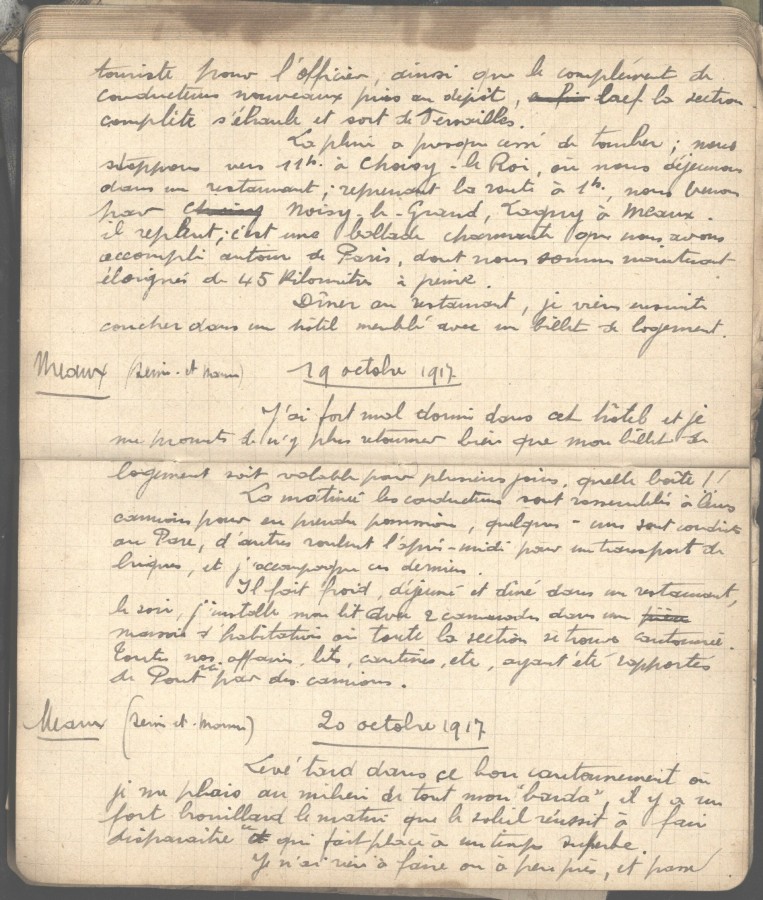 touriste pour l'officier, ainsi que le complément de
conducteurs nouveaux pris au dépôt, bref la section
complète s'ébranle et sort de Versailles.
La pluie a presque cessé de tomber ; nous
stoppons vers 11h. à Choisy-le-Roi, où nous déjeunons
dans un restaurant ; reprenant la route à 1h, nous venons
par Choisy Noisy-le-Grand, Lagny à Meaux.
il repleut ; c'est une ballade charmante que nous avons
accompli autour de Paris, dont nous sommes maintenant
éloignés de 45 Kilomètres à peine.
Dîner au restaurant, je viens ensuite
coucher dans un hôtel meublé avec un billet de logement.
Meaux (Seine-et-Marne) 19 octobre 1917
J'ai fort mal dormi dans cet hôtel et je
me promets de n'y plus retourner bien que mon billet de
logement soit valable pour plusieurs jours, quelle boîte !!
La matinée les conducteurs sont rassemblés à leurs
camions pour en prendre possession, quelques-uns sont conduits
au Parc, d'autres roulent l'après-midi pour un transport de
briques, et j'accompagne ces derniers.
Il fait froid, déjeuné et dîné dans un restaurant,
le soir, j'installe mon lit avec 2 camarades dans une pièce
maison d'habitation où toute la section se trouve cantonnée.
Toutes nos affaires, lits, cantines, etc, ayant été rapportés
de Pont par des camions.
Meaux (Seine-et-Marne) 20 octobre 1917
Levé tard dans ce bon cantonnement où
je me plais au milieu de tout mon "barda", il y a un
fort brouillard le matin que le soleil réussit à faire
disparaître et qui fait place à un temps superbe.
Je n'ai rien à faire ou à peu près, et passe